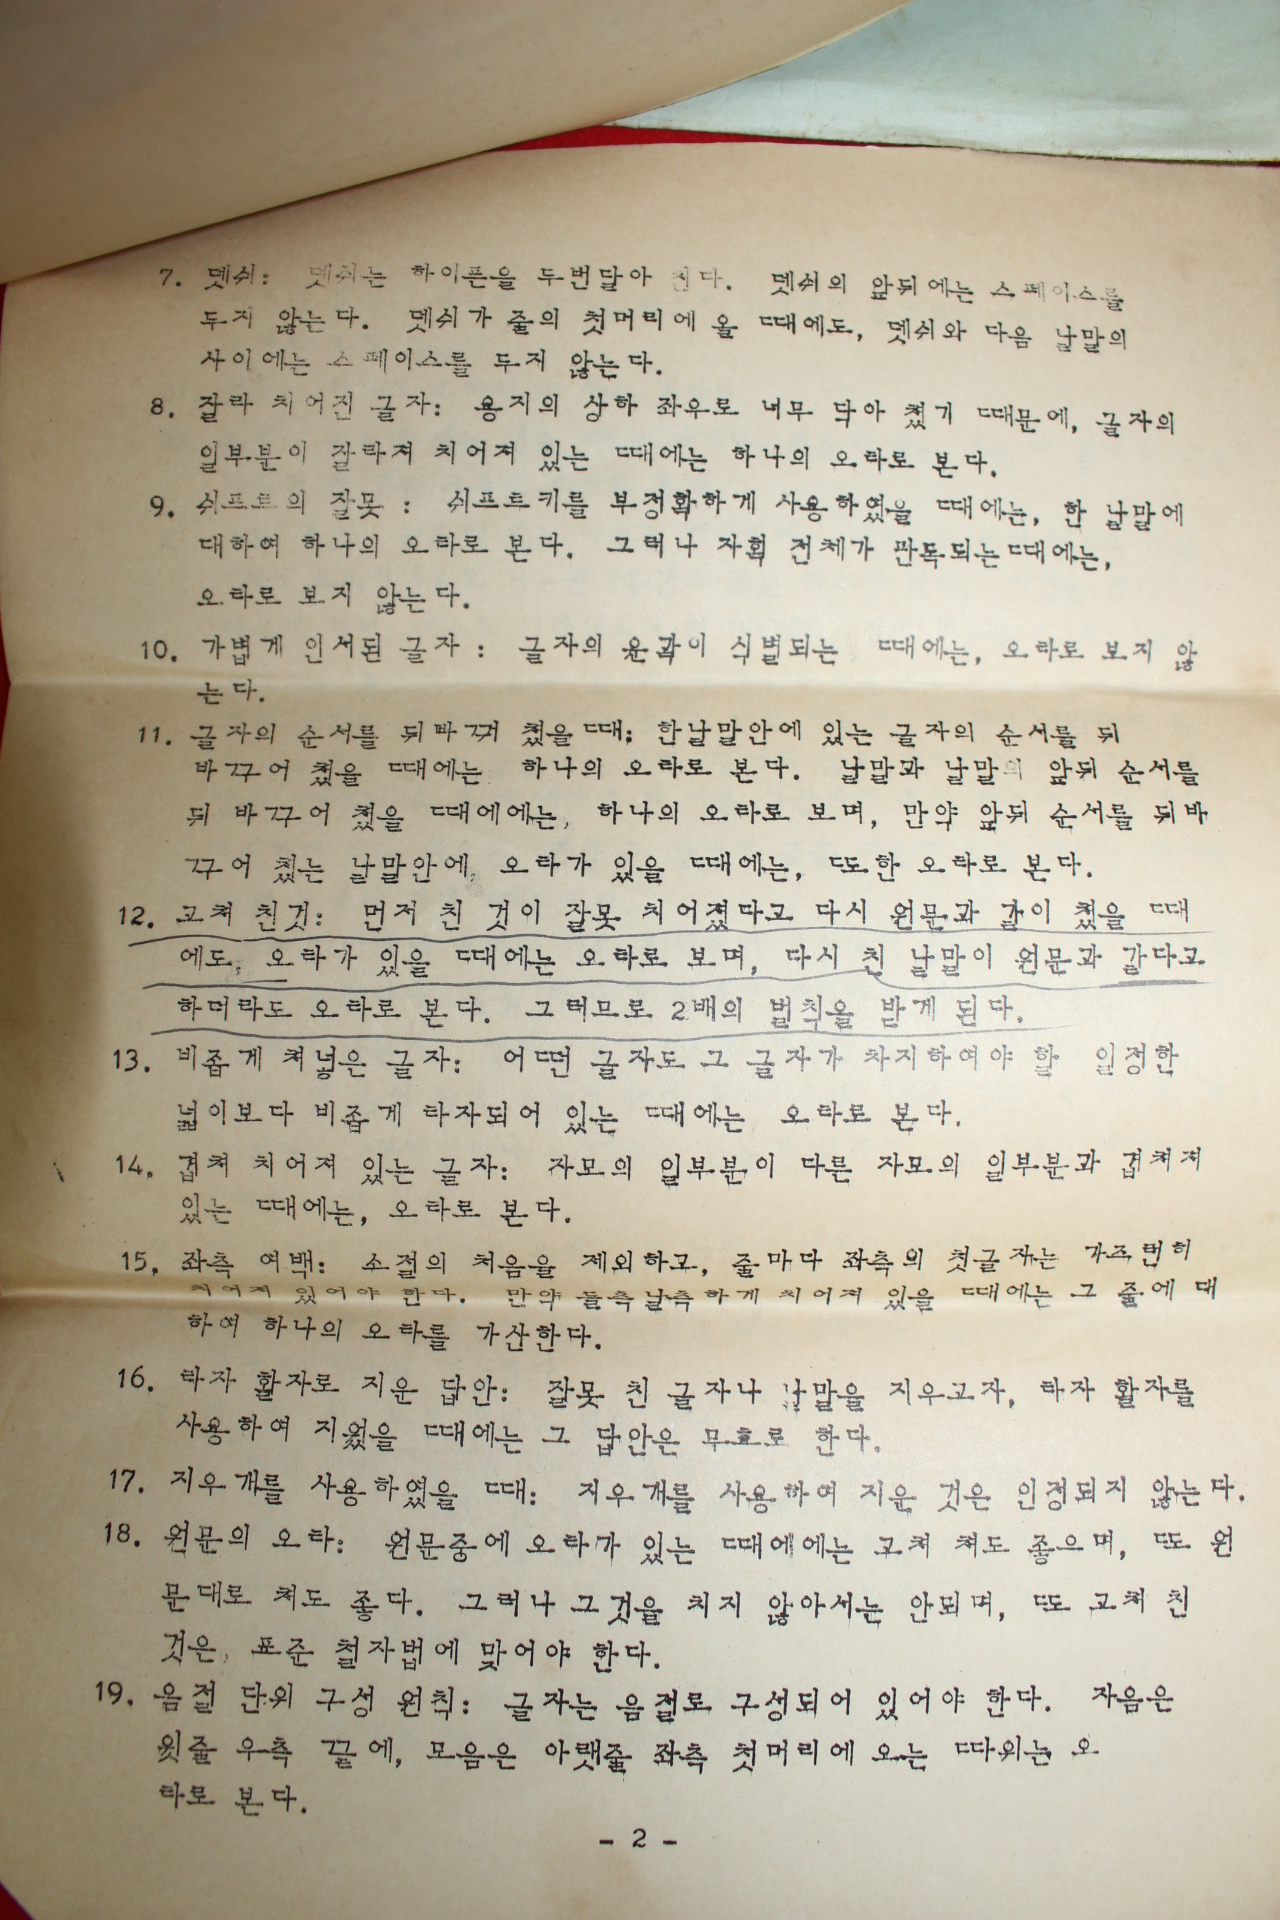 7. 뎃쉬: 뎃쉬는 하이픈을 두번달아 친다. 뎃쉬의 앞뒤에는 스페이스를
두지 않는다. 뎃쉬가 줄의 첫머리에 올 때에도, 뎃쉬와 다음 낱말의
사이에는 스페이스를 두지 않는다.
8. 잘라 치어진 글자: 용지의 상하 좌우로 너무 닥아 쳤기 때문에, 글자의
일부분이 잘라져 치어져 있는 때에는 하나의 오타로 본다.
9. 쉬프트의 잘못 : 쉬프트키를 부정확하게 사용하였을 때에는, 한 낱말에
대하여 하나의 오타로 본다. 그러나 자획 전체가 판독되는때에는,
오타로 보지 않는다.
10. 가볍게 인서된 글자 : 글자의 윤곽이 식별되는 때에는, 오타로 보지 않
는다.
11. 글자의 순서를 뒤바꿔 쳤을때: 한낱말안에 있는 글자의 순서를 뒤
바꾸어 쳤을 때에는 하나의 오타로 본다. 낱말과 낱말의 앞뒤 순서를
뒤 바꾸어 쳤을 때에에는, 하나의 오타로 보며, 만약 앞뒤 순서를 뒤바
꾸어 쳤는 낱말안에, 오타가 있을 때에는, 또한 오타로 본다.
12. 고쳐 친것: 먼저 친 것이 잘못 치어졌다고 다시 원문과 같이 쳤을 때
에도, 오타가 있을 때에는 오타로 보며, 다시 친 낱말이 원문과 같다고
하더라도 오타로 본다. 그러므로 2배의 벌칙을 받게 된다.
13. 비좁게 쳐넣은 글자: 어떤 글자도 그 글자가 차지하여야 할 일정한
넓이보다 비좁게 타자되어 있는 때에는 오타로 본다.
14. 겹쳐 치어져 있는 글자: 자모의 일부분이 다른 자모의 일부분과 겹쳐져
있는 때에는, 오타로 본다.
15. 좌측 여백: 소절의 처음을 제외하고, 줄마다 좌측의 첫글자는 가즈런히
치어져 있어야 한다. 만약 들쑥날쑥하게 치어져 있을 때에는 그 줄에 대
하여 하나의 오타를 가산한다.
16. 타자 활자로 지운 답안: 잘못 친 글자나 낱말을 지우고자, 타자 활자를
사용하여 지웠을 때에는 그 답안은 무효로 한다.
17. 지우개를 사용하였을 때: 지우개를 사용하여 지운 것은 인정되지 않는다.
18. 원문의 오타: 원문중에 오타가 있는 때에에는 고쳐 쳐도 좋으며, 또 원
문대로 쳐도 좋다. 그러나 그것을 치지 않아서는 안되며, 또 고쳐 친
것은, 표준 철자법에 맞어야 한다.
19. 음절 단위 구성 원칙: 글자는 음절로 구성되어 있어야 한다. 자음은
윗줄 우측 끝에, 모음은 아랫줄 좌측 첫머리에 오는 따위는 오
타로 본다.
- 2 -